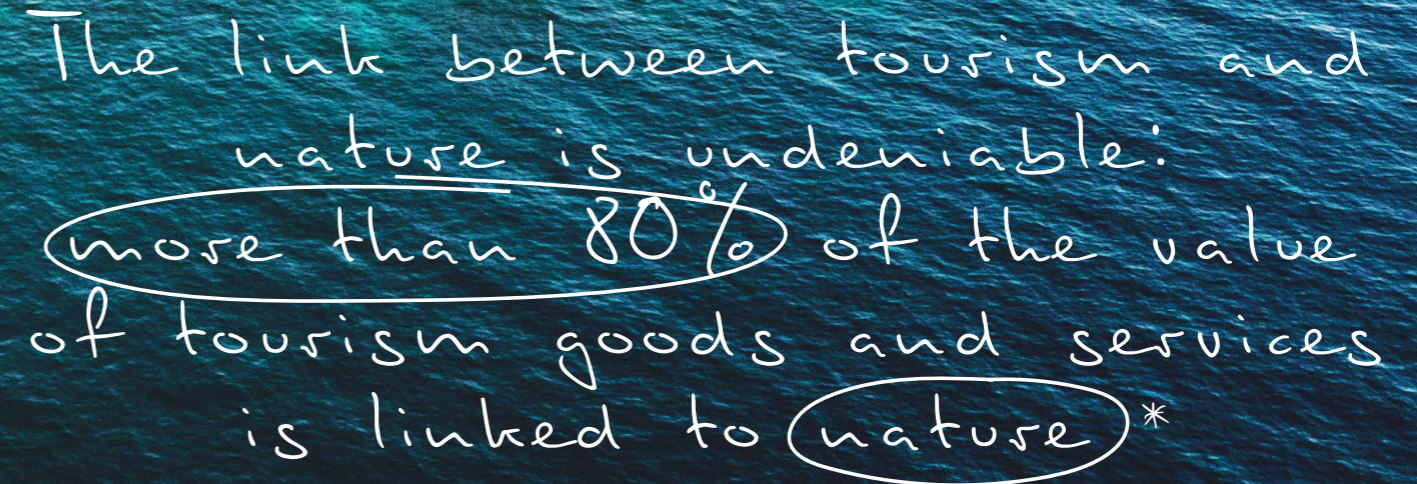 The link between tourism and
nature is undeniable:
more than 80% of the value
of tourism goods and services
is linked to nature*